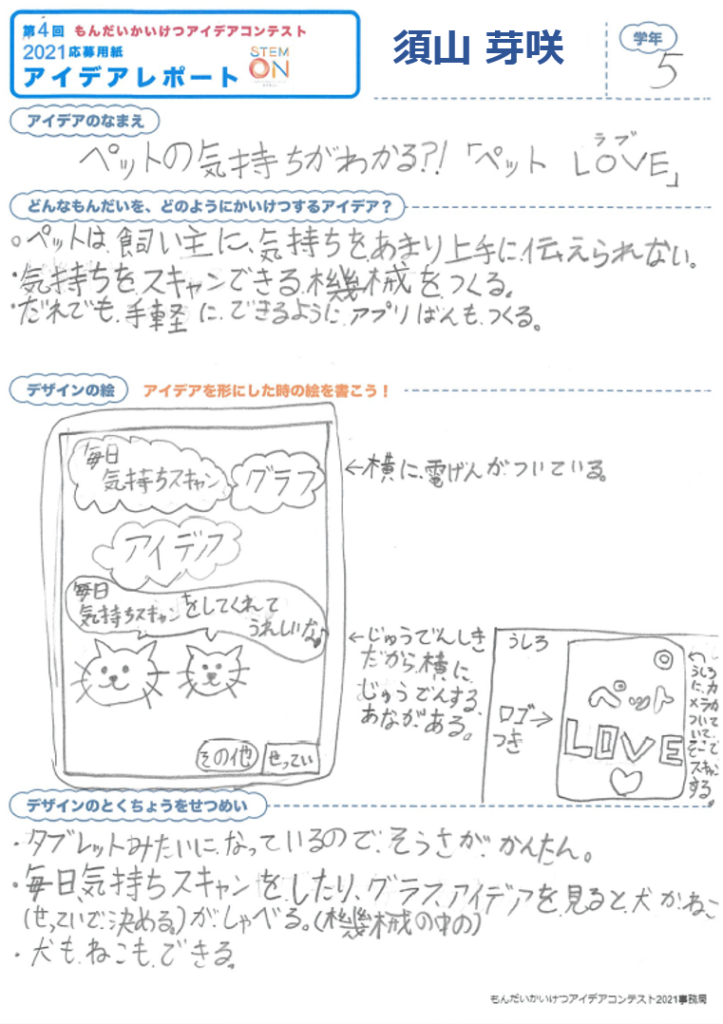 第4回 もんだいかいけつアイデアコンテスト
2021応募用紙
アイデアレポート
STEM
ON
須山 芽咲
学年
5
アイデアのなまえ
ペットの気持ちがわかる?!「ペット LOVE」
ラブ
どんなもんだいを、どのようにかいけつするアイデア？
○ペットは、飼い主に、気持ちをあまり上手に伝えられない。
・気持ちをスキャンできる機械をつくる。
・だれでも、手軽に、できるように、アプリばんも、つくる。
デザインの絵
アイデアを形にした時の絵を書こう！
毎日
気持ちスキャン
グラフ
アイデア
毎日
気持ちスキャンをしてくれて
うれしいな♪
その他
せってい
←横に、電げんがついている。
←じゅうでんしき
だから、横に
じゅうでんする、
あながある。
うしろ
ロゴ→
つき
ペット
LOVE
←うしろ
に、カ
メラが
ついて
いて、
そこで
スキャン
する。
デザインのとくちょうをせつめい
・タブレットみたいに、なっているので、そうさが、かんたん。
・毎日、気持ちスキャンを、したり、グラフ、アイデアを見ると、犬かねこ
(せっていで、決める。)が、しゃべる。(機械の中の)
・犬も、ねこも、できる。
もんだいかいけつアイデアコンテスト2021事務局